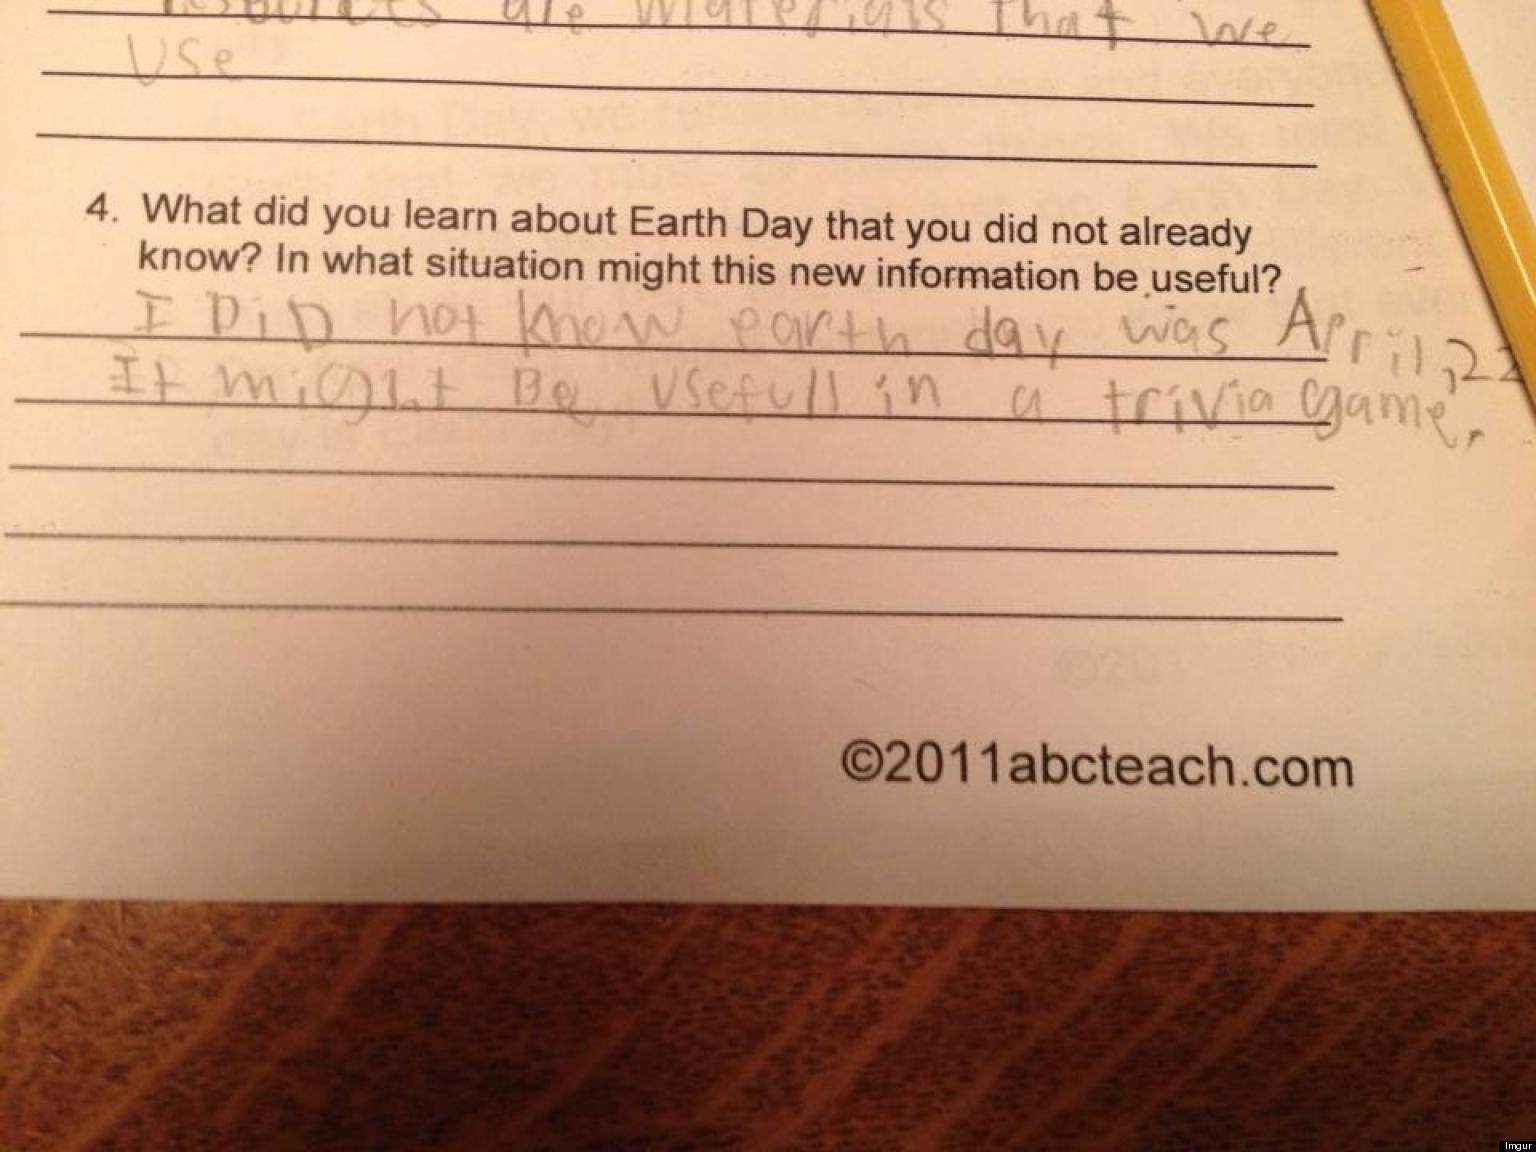 resources are materials that we
Use
4. What did you learn about Earth Day that you did not already
know? In what situation might this new information be useful?
I DiD not know earth day was April,22
It might Be usefull in a trivia game.
©2011abcteach.com
Imgur